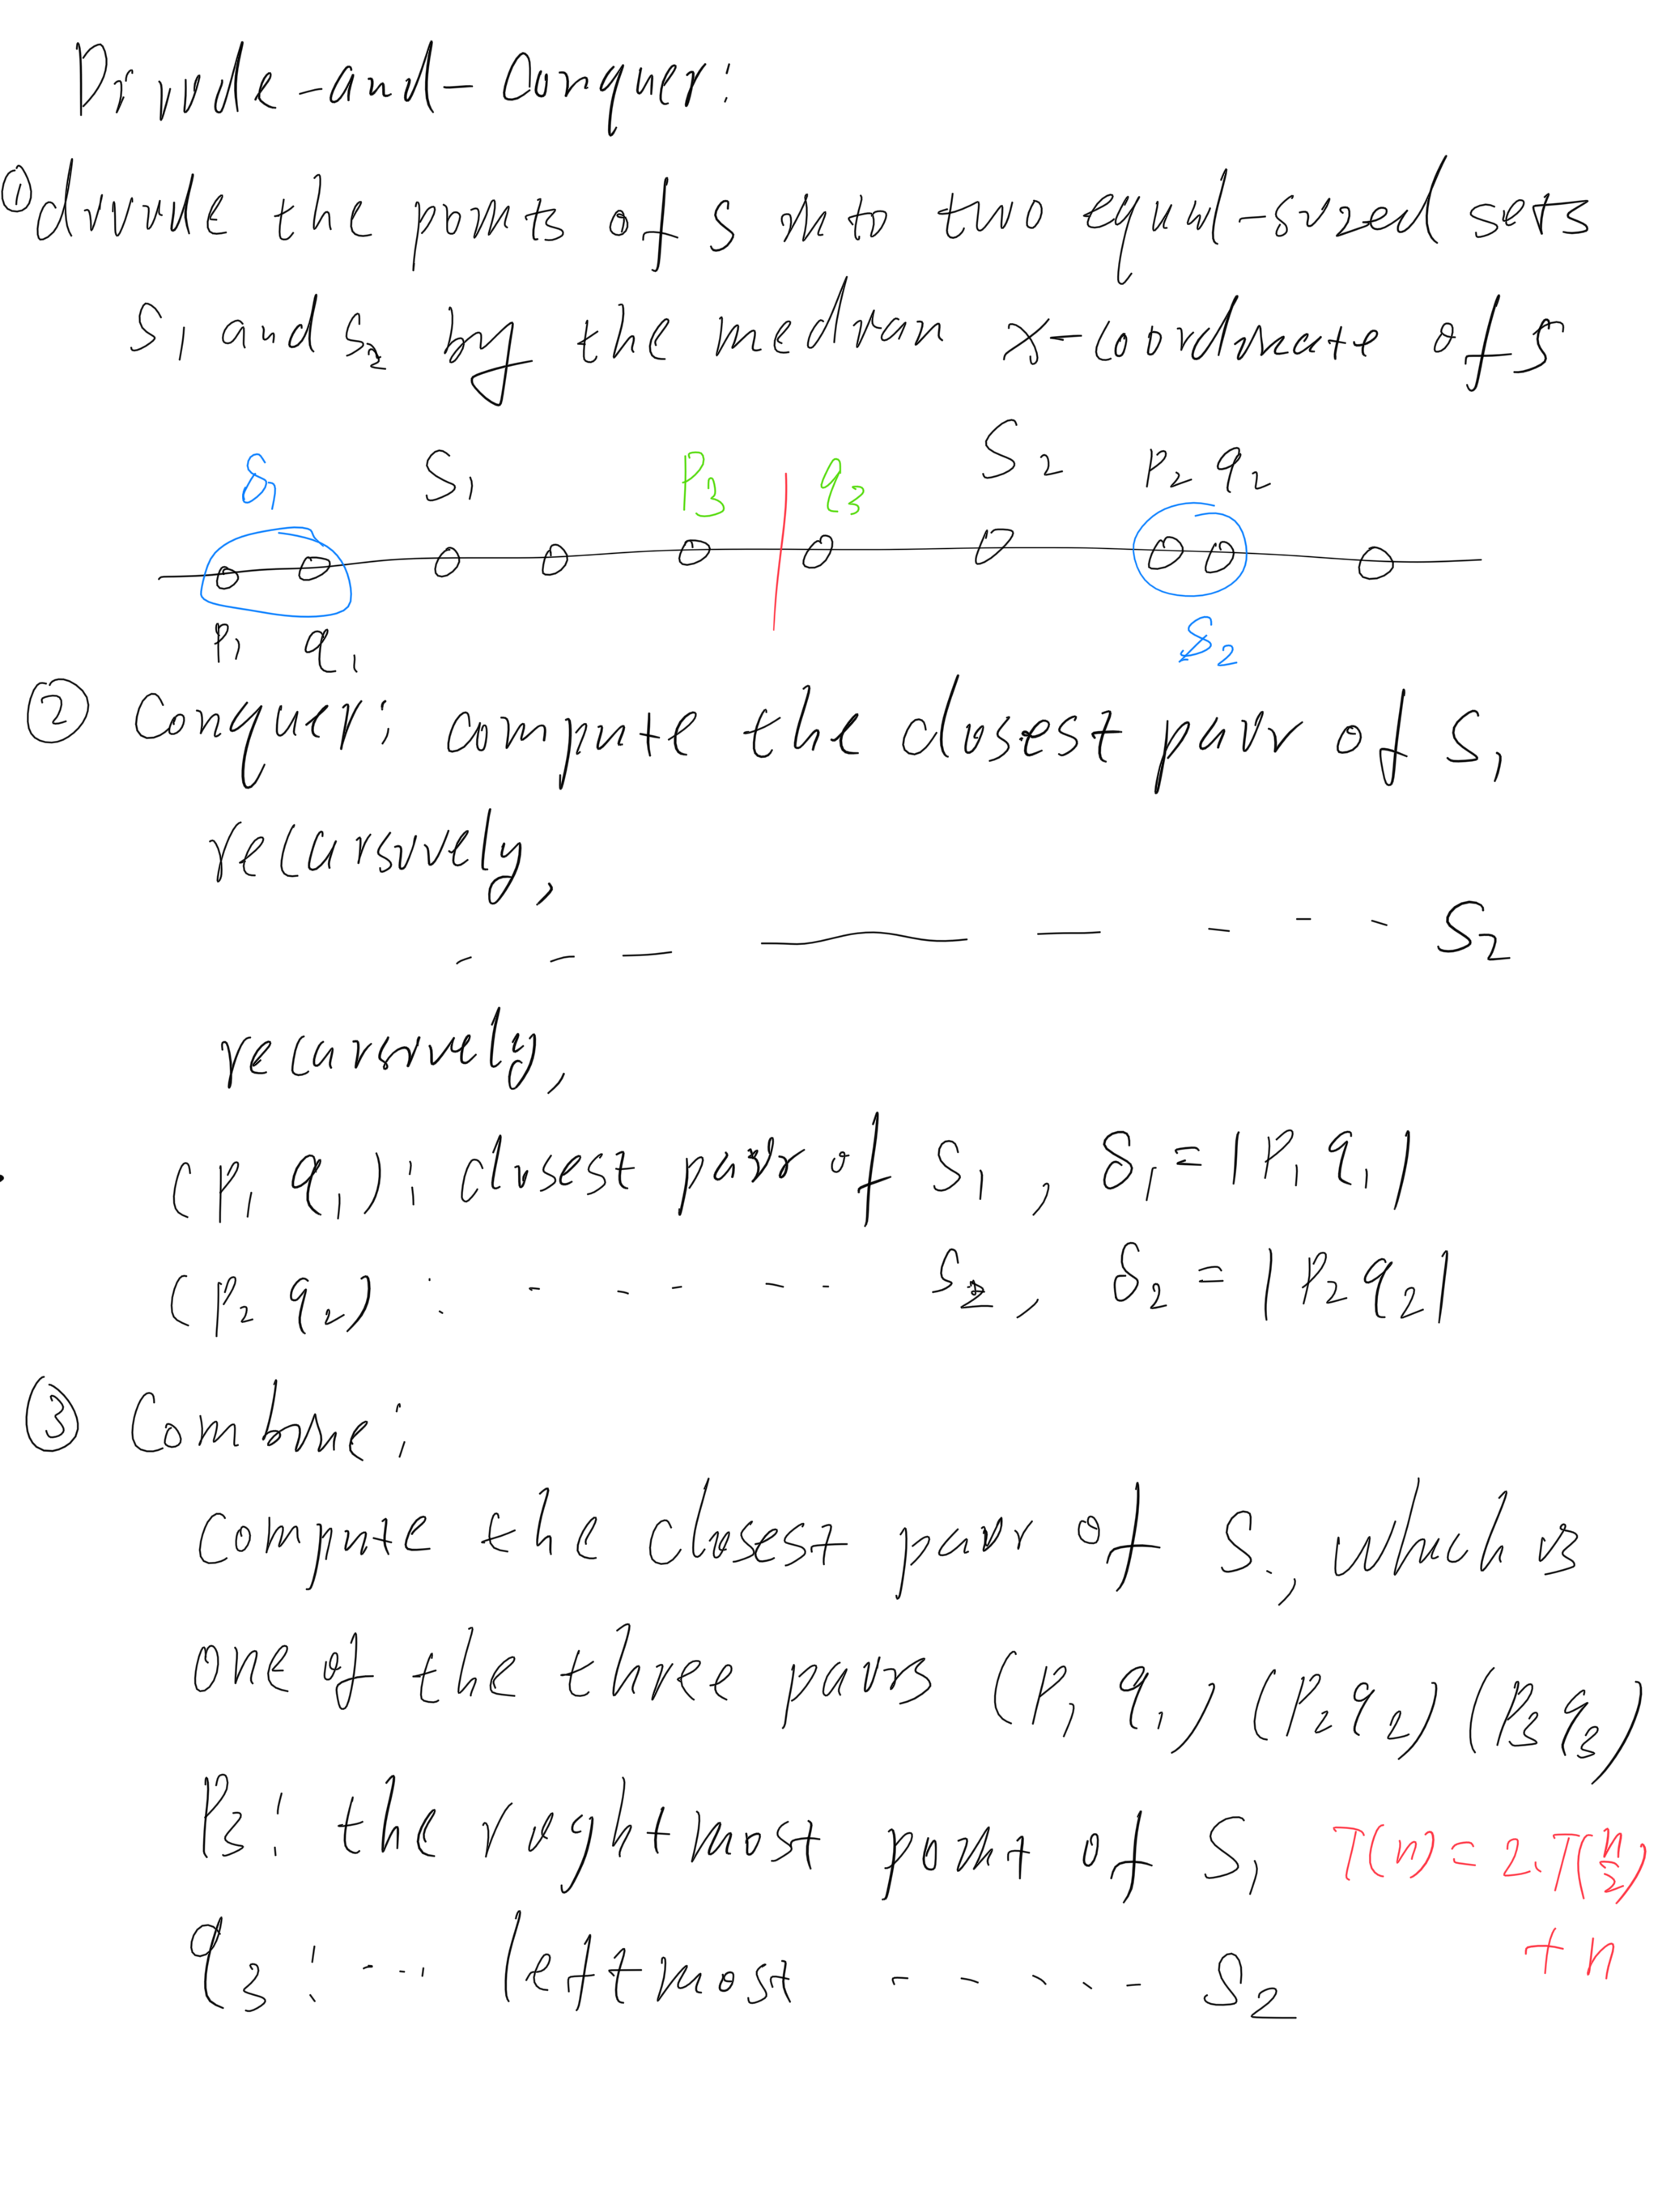 Divide-and-Conquer:
① divide the points of S into two equal-sized sets
S₁ and S₂ by the median x-coordinate of S
δ₁ S₁ P₃ q₃ S₂ P₂ q₂
P₁ q₁ δ₂
② Conquer: compute the closest pair of S₁
recursively,
- - — —— — - - - S₂
recursively,
(P₁ q₁): closest pair of S₁, δ₁ = |P₁ q₁|
(P₂ q₂): - - - - - S₂, δ₂ = |P₂ q₂|
③ Combine:
compute the closest pair of S., which is
one of the three pairs (P₁ q₁) (P₂ q₂) (P₃ q₃)
P₃: the rightmost point of S₁ T(n) = 2·T(n/2)
+ n
q₃: --- leftmost - - - - - S₂